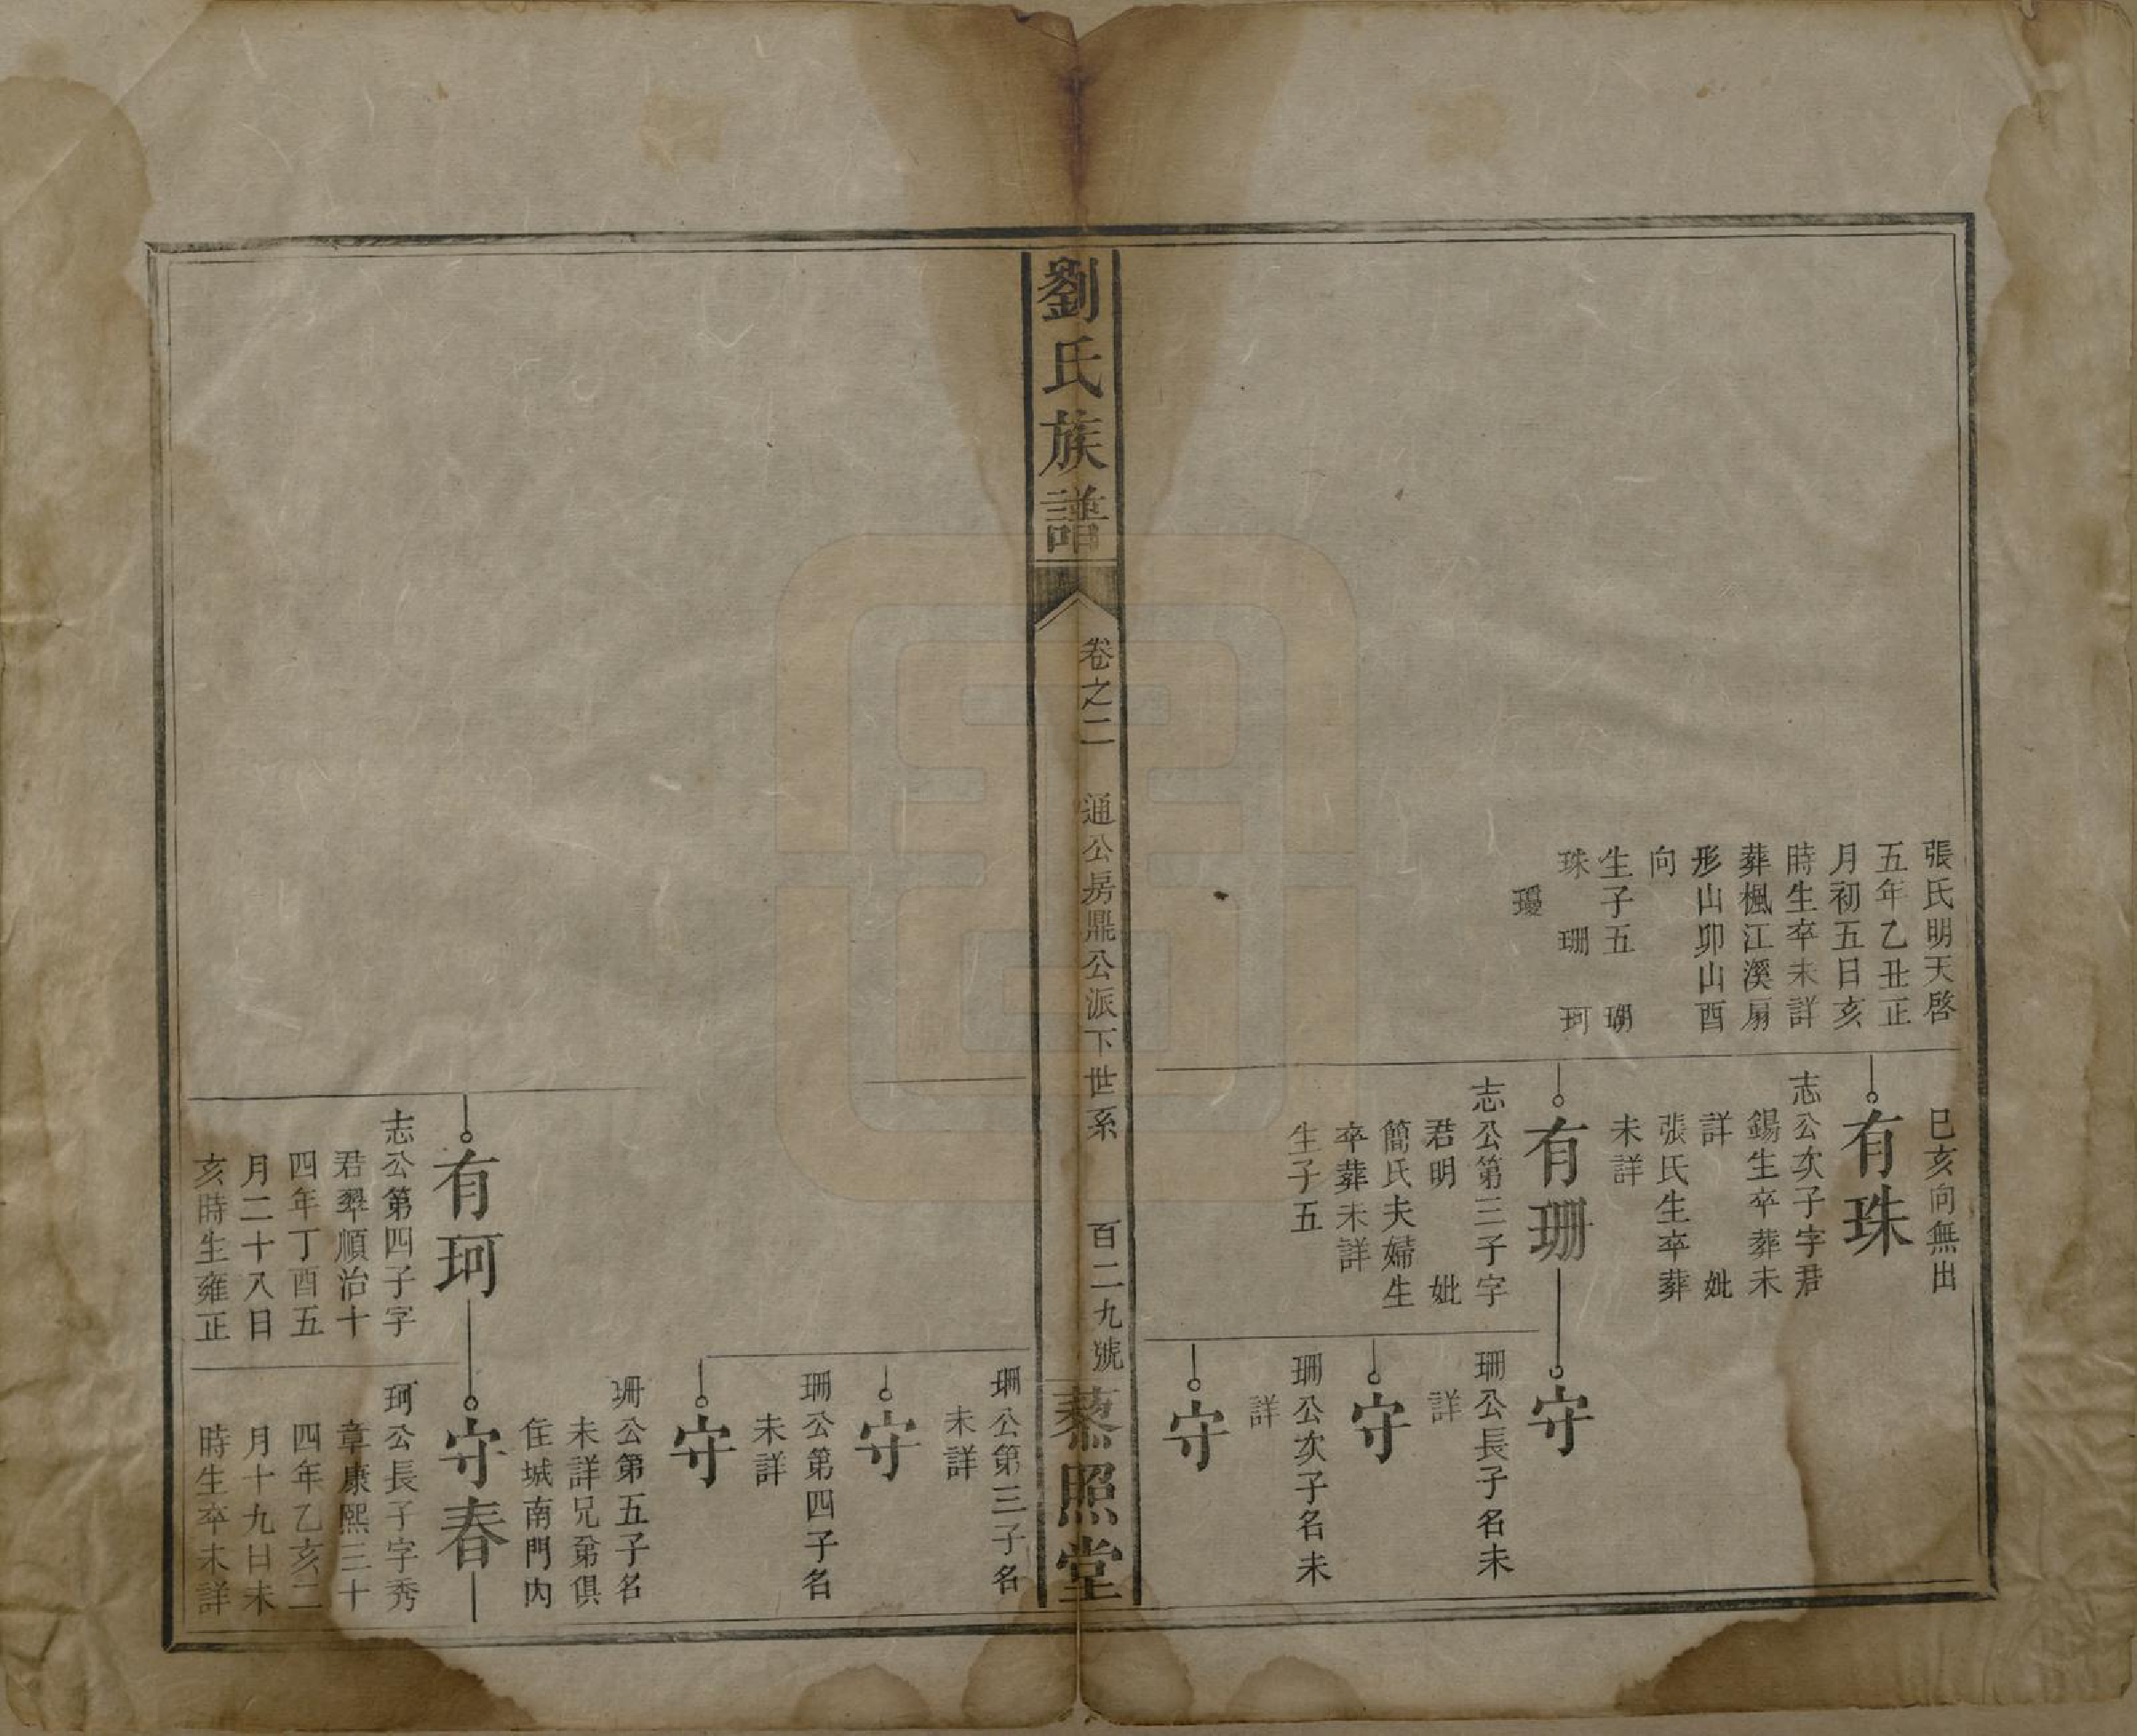 張氏明天啓
五年乙丑正
月初五日亥
時生卒未詳
葬楓江溪扇
形山卯山酉
向
生子五 瑚
珠 珊 珂
璦
巳亥向無出
有珠
志公次子字君
錫生卒葬未
詳 妣
張氏生卒葬
未詳
有珊
志公第三子字
君明 妣
簡氏夫婦生
卒葬未詳
生子五
守
珊公長子名未
詳
守
珊公次子名未
詳
守
劉氏族譜
卷之二 通公房鼎公派下世系 百二九號
藜照堂
珊公第三子名
未詳
守
珊公第四子名
未詳
守
珊公第五子名
未詳兄弟俱
住城南門内
有珂
志公第四子字
君翠順治十
四年丁酉五
月二十八日
亥時生雍正
守春
珂公長子字秀
章康熙三十
四年乙亥二
月十九日未
時生卒未詳